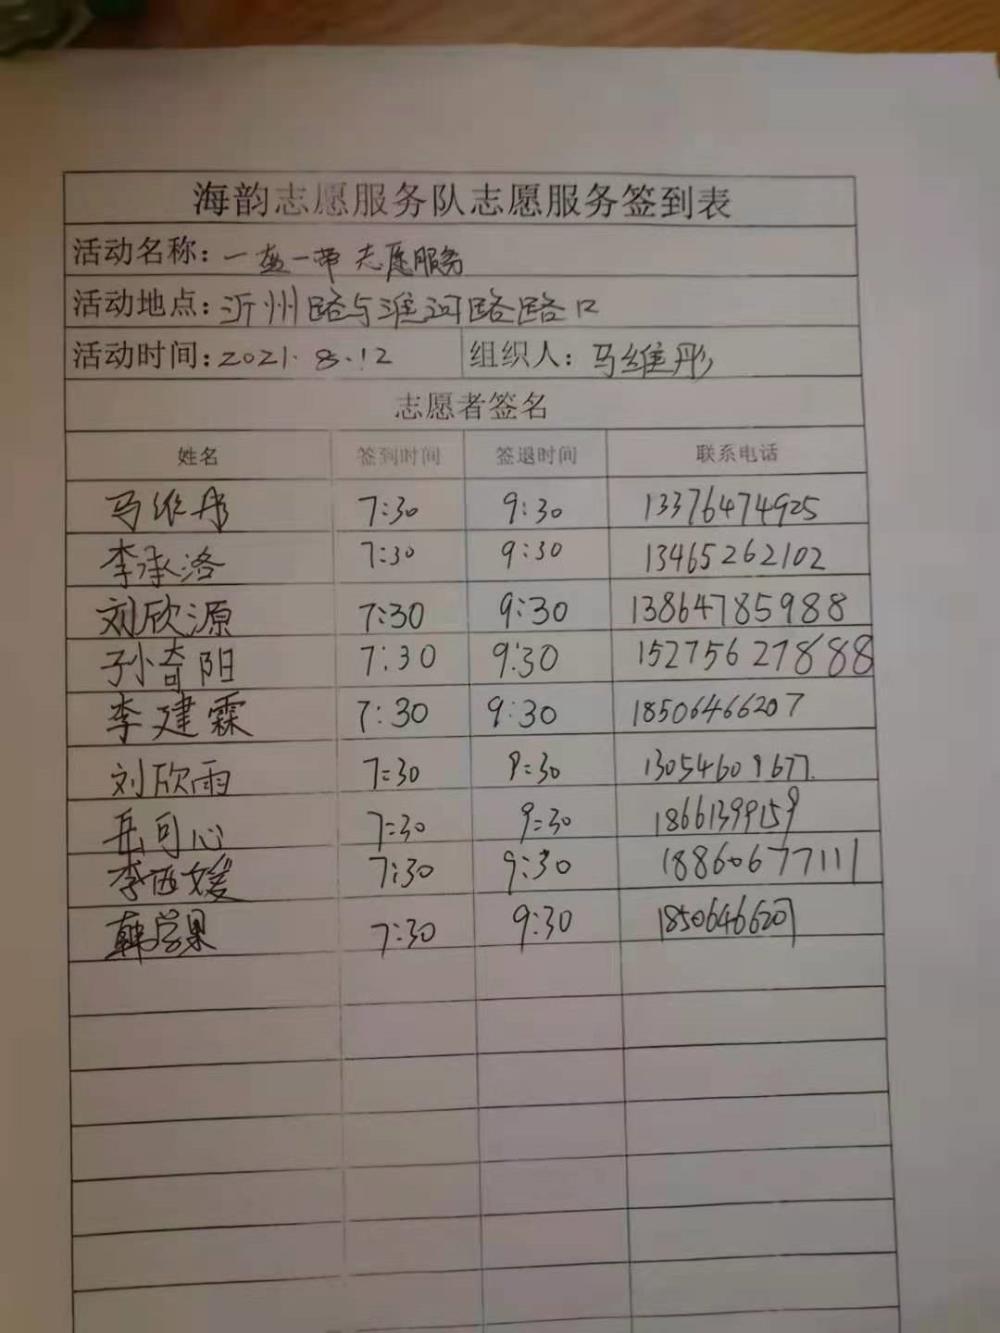 海韵志愿服务队志愿服务签到表
活动名称：一盔一带 志愿服务
活动地点：沂州路与淮河路路口
活动时间：2021.8.12 组织人：马维彤
志愿者签名
姓名 签到时间 签退时间 联系电话
马维彤 7:30 9:30 13376474925
李承洛 7:30 9:30 13465262102
刘欣源 7:30 9:30 13864785988
孙奇阳 7:30 9:30 152756278888
李建霖 7:30 9:30 18506466207
刘欣雨 7:30 9:30 13054609677.
岳可心 7:30 9:30 18661399159
李西媛 7:30 9:30 18860677111
韩学果 7:30 9:30 18506466207